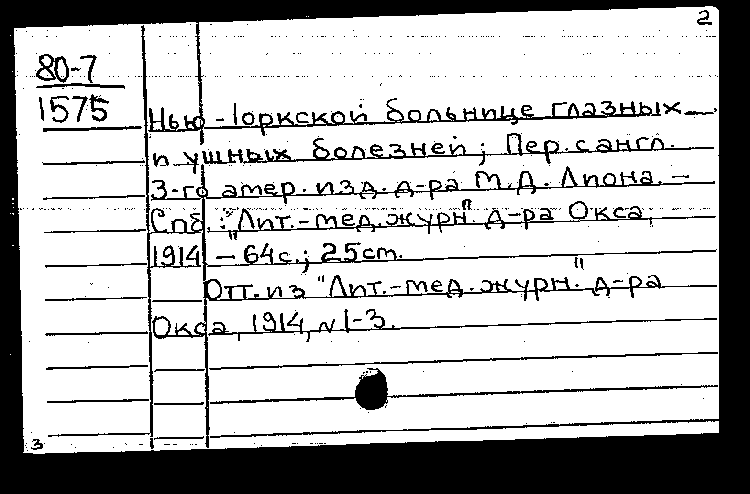 2
80-7
1575
Нью-Іоркской больнице глазных
и ушных болезней; Пер. с англ.
3-го амер. изд. д-ра М.Д. Лиона. -
Спб.: "Лит.-мед. журн." д-ра Окса,
1914 - 64с.; 25см.
Отт. из "Лит.-мед. журн." д-ра
Окса, 1914, N 1-3.
3